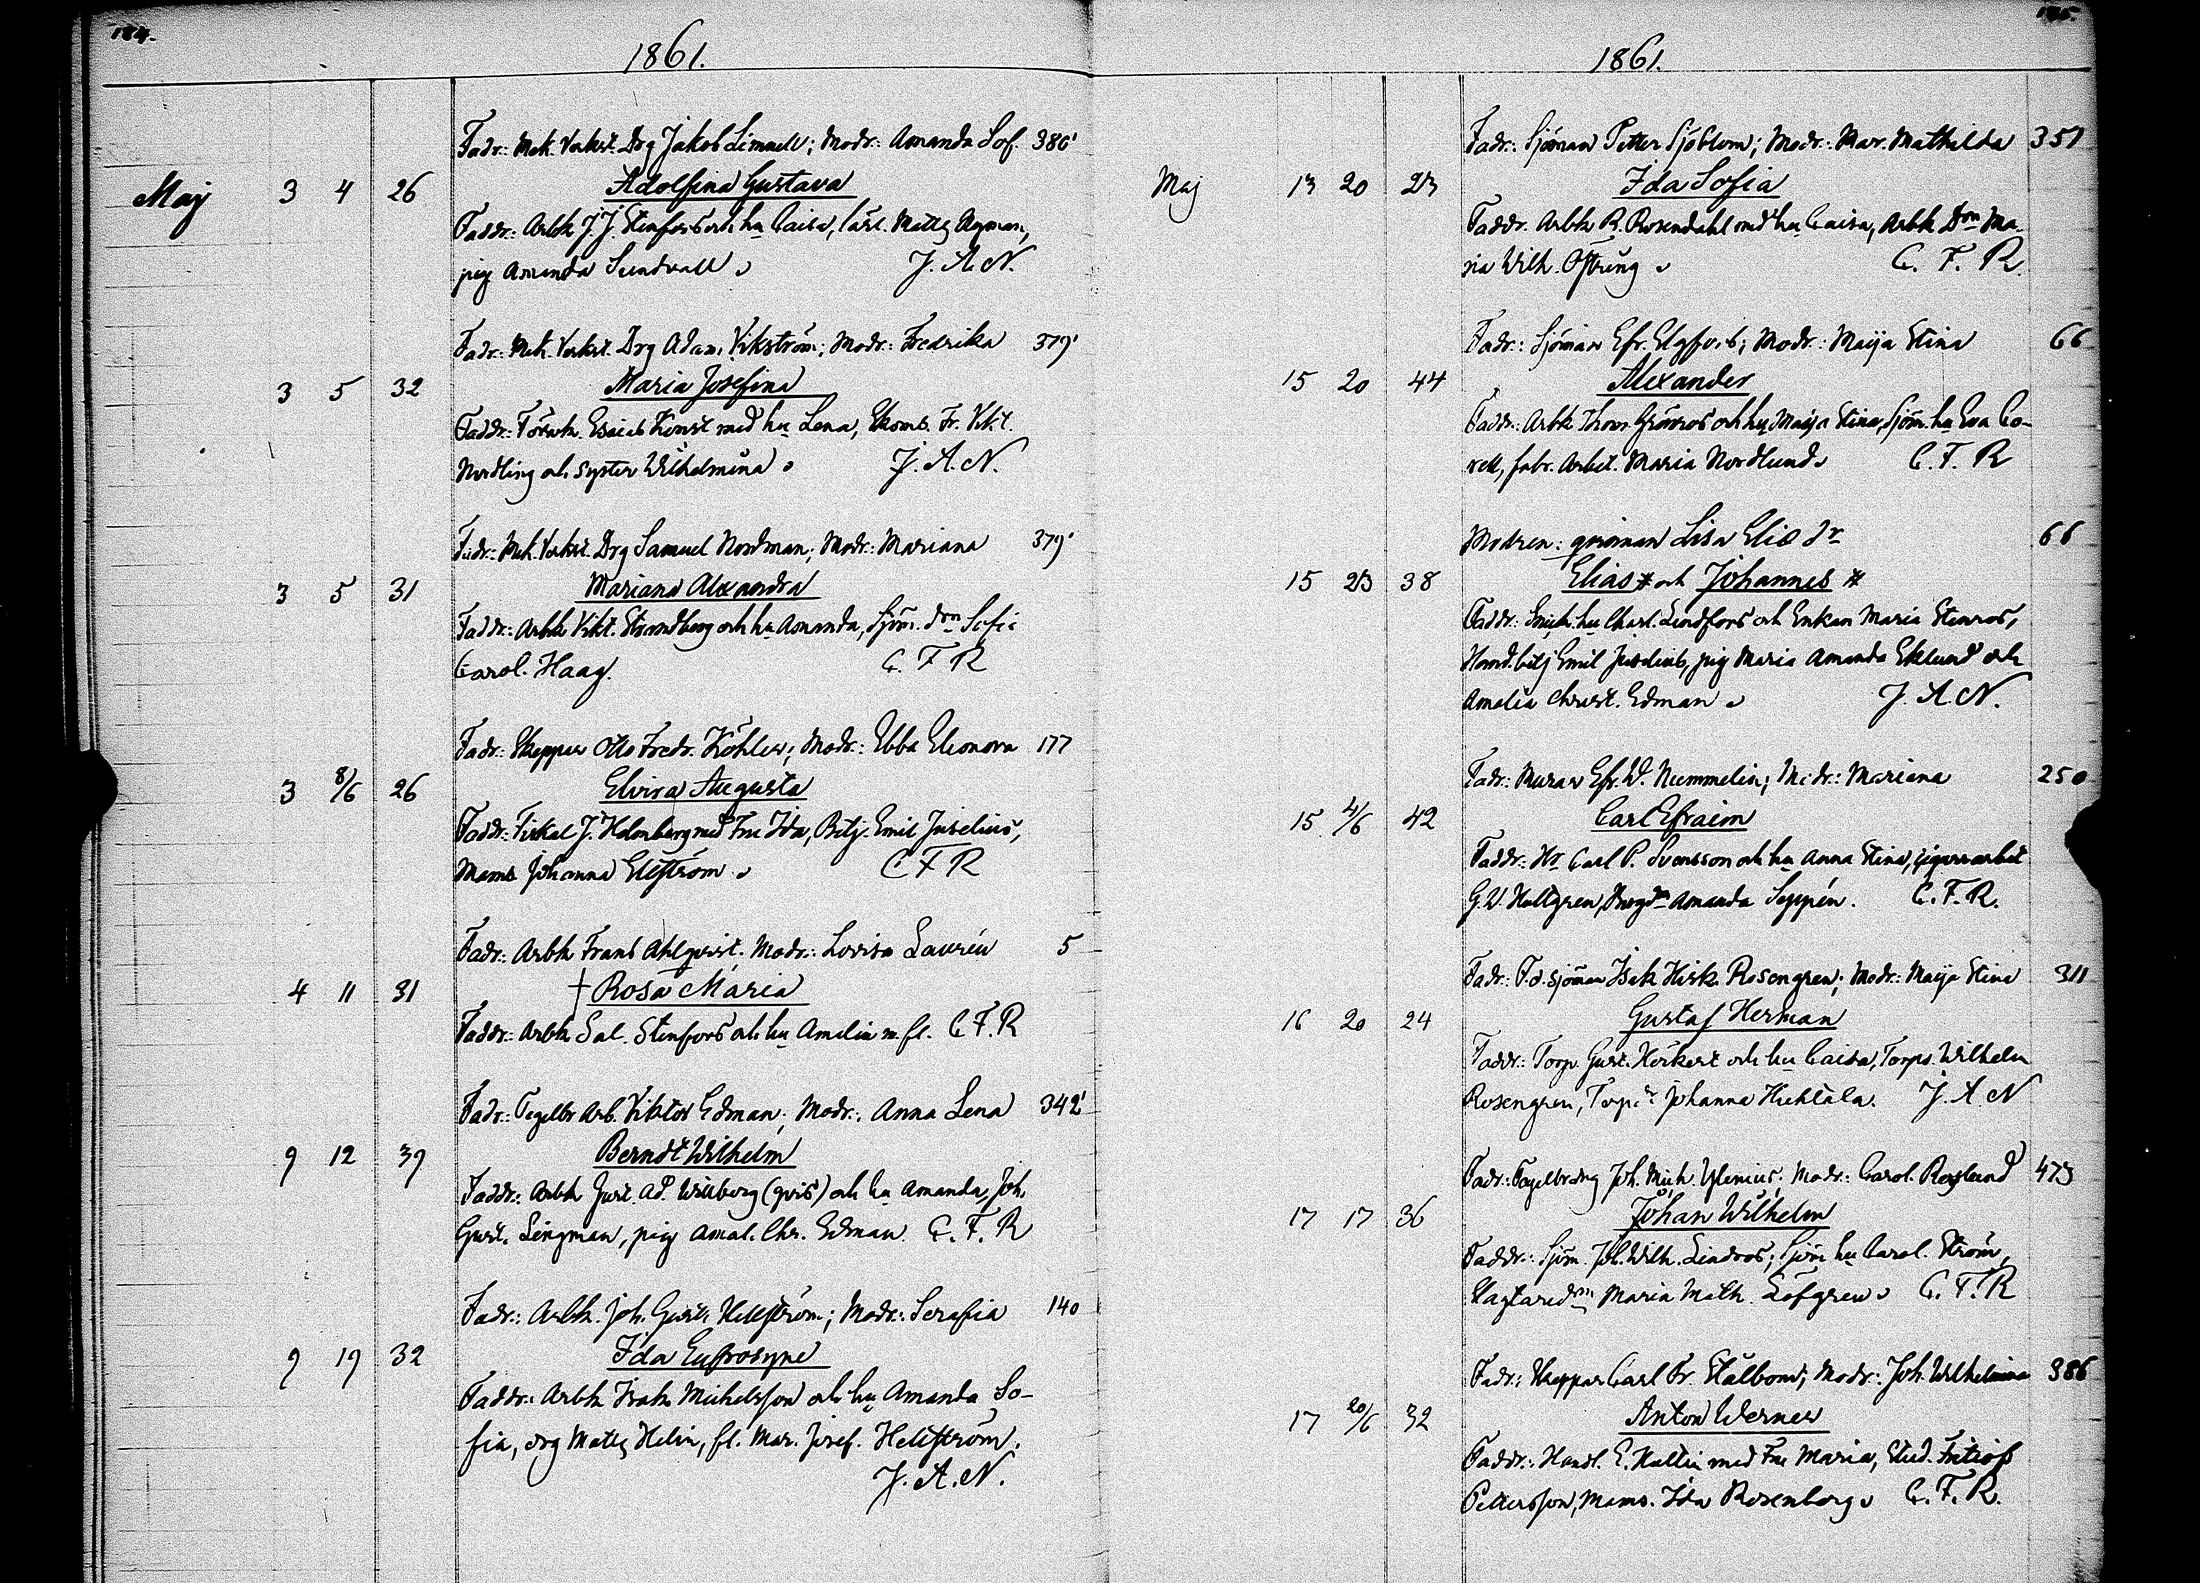 184.
1861.
Fadr: Mek. Verkst. Drg Jakob Limnell; Modr: Amanda Sof. 386'
Maj 3 4 26 Adolfina Gustava
Faddr: Arbk J. J. Stenfors och hu Caisa, Matts Nyman,
pig Amanda Sundvall J. A. N.
Fadr: Mek. Verkst. Drg Adam Vikström; Modr: Fredrika 379'
3 5 32 Maria Josefina
Faddr: Esaias Konst med hu Lena, Fr. Vikt.
Nordling och syster Wilhelmina J. A. N.
Fadr: Mek. Verkst. Drg Samuel Nordman; Modr: Mariana 379'
3 5 31 Mariana Alexandra
Faddr: Arbk Vikt. Strandberg och hu Amanda, Sjöm. dn Sofia
Carol. Haag. C. F. R
Fadr: Skeppar Otto Fredr. Köhler; Modr: Ebba Eleonora 177
3 8/6 26 Elvira Augusta
Faddr: Fiskal J. Holmberg med Fru Ida, Betj. Emil Juselius,
Mams Johanna Elfström C F R
Fadr: Arbk Frans Ahlqvist. Modr: Lovisa Laurén 5
4 11 31 † Rosa Maria
Faddr: Arbk Sal. Stenfors och hu Amalia m. fl. C. F. R
Fadr: Tegelbr. Arb. Viktor Edman; Modr: Anna Lena 342'
9 12 39 Berndt Wilhelm
Faddr: Arbk Gust. Ad. Willberg (qvis) och hu Amanda, Joh.
Gust. Lingman, pig Amal. Chr. Edman C. F. R
Fadr: Arbk. Joh. Gust. Hellström; Modr: Serafia 140
9 19 32 Ida Eufrosyne
Faddr: Arbk Isak Michelsson och hu Amanda So-
fia, drg Matts Helin, fl. Mar. Josef. Hellström.
J. A. N.
185.
1861.
Fadr: Sjöman Petter Sjöblom; Modr: Mar. Mathilda 351
Maj 13 20 23 Ida Sofia
Faddr. Arbk R. Rosendahl med hu Caisa, Arbk Don Ma-
ria Wilh. Öftring C. F. R.
Fadr: Sjöman Efr. Elgfors; Modr: Maija Stina 66
15 20 44 Alexander
Faddr: Arbk Thom. Grönros och hu Maija Stina, Sjöm. hu Eva Co-
rell, fabr. Arbet. Maria Nordlund C. F. R
Modren: qvinnan Lisa Elis dr 66
15 23 38 Elias * och Johannes *
Faddr: hu Charl. Lindfors och Enkan Maria Stenros,
Hand. betj Emil Juselius, pig Maria Amanda Eklund och
Amalia Christ. Edman J. A. N.
Fadr: Murar Efr. W. Nummelin; Modr: Mariana 250
15 4/6 42 Carl Efraim
Faddr: Hr Carl P. Svensson och hu Anna Stina, Cigarrarbet
G. W. Hallgren, Amanda Seppén. C. F. R.
Fadr: F.d. sjöman Isak Hisk. Rosengren; Modr: Maija Stina 311
16 20 24 Gustaf Herman
Faddr: Torp. Gust. Herkert och hu Caisa, Torps. Wilhelm
Rosengren, Torp. dr Johanna Huhtala. J. A. N
Fadr: Tegelbr. drg Joh. Mich. Ylenius; Modr: Carol. Roslund 473
17 17 36 Johan Wilhelm
Faddr: Sjöm. Joh. Wilh. Lindros; Sjöm hu Carol. Ström,
Maria Math. Löfgren C. F. R
Fadr: Skeppar Carl Fr. Stålbom; Modr: Joh. Wilhelmina 386
17 20/6 32 Anton Werner
Faddr: Handl. E. Hallin med Fru Maria, Stud. Fritiof
Pettersson, Mams. Ida Rosenberg C. F. R.